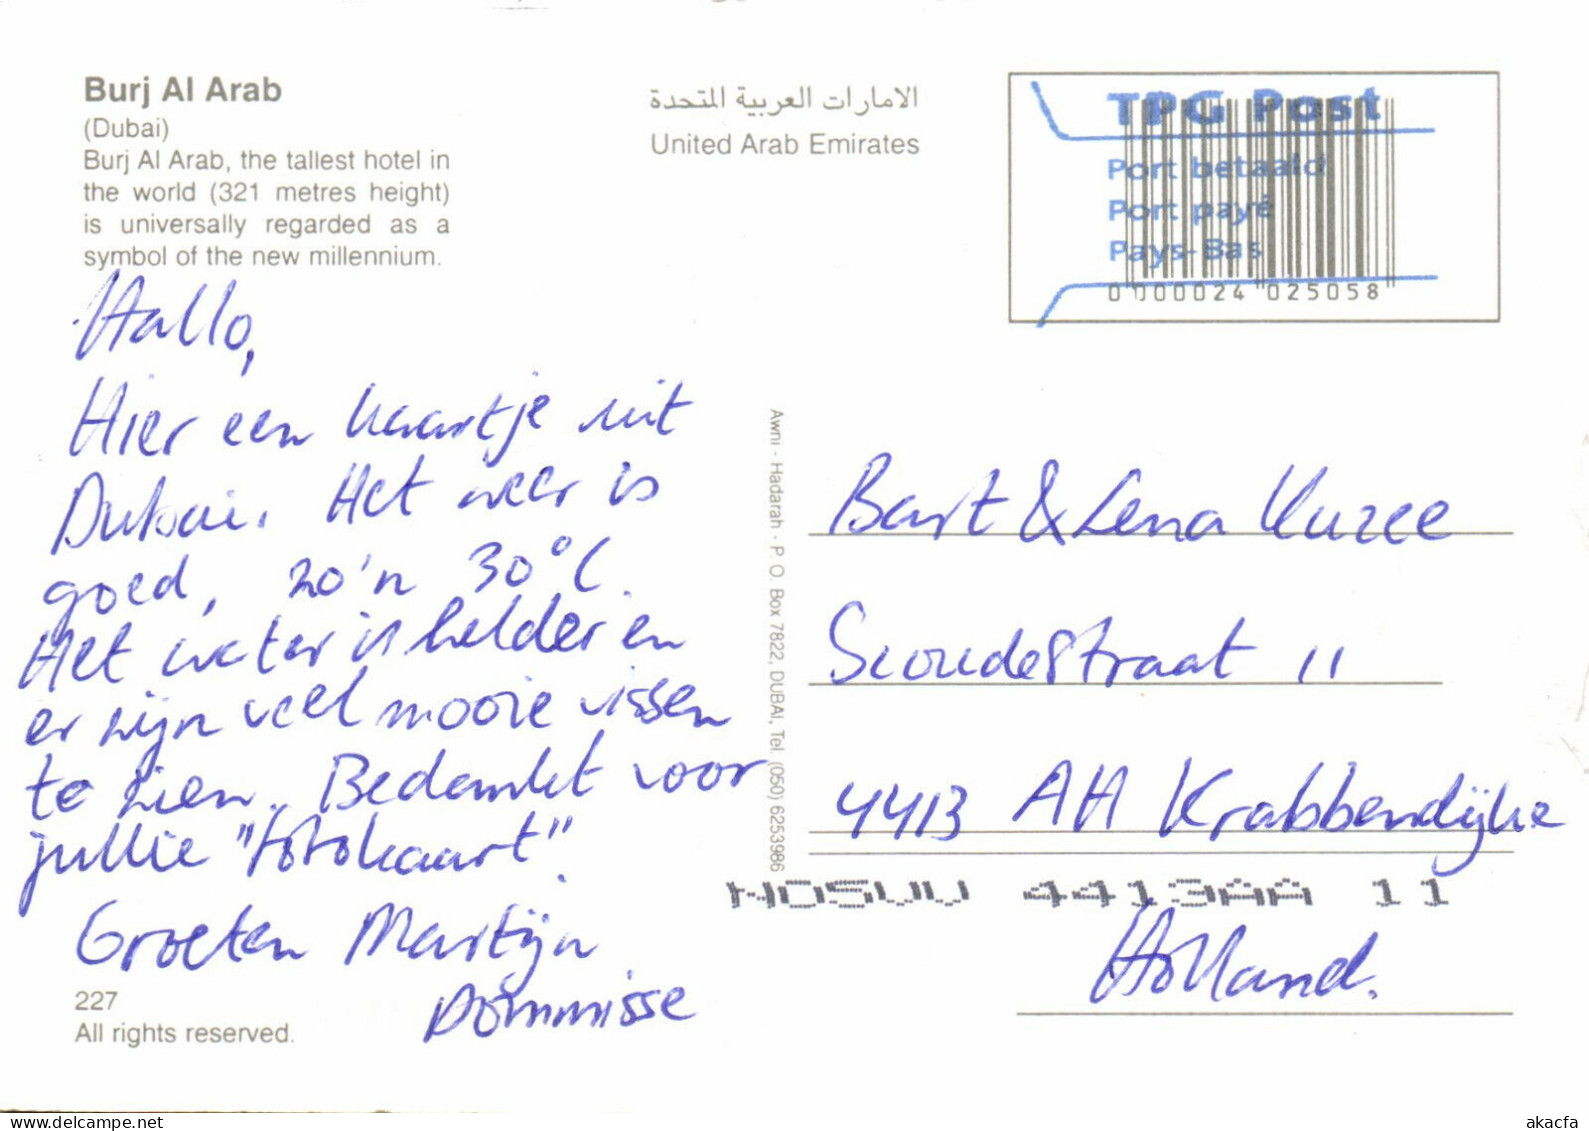 Burj Al Arab
(Dubai)
Burj Al Arab, the tallest hotel in
the world (321 metres height)
is universally regarded as a
symbol of the new millennium.
الامارات العربية المتحدة
United Arab Emirates
TPG Post
Port betaald
Port payé
Pays-Bas
0000024 025058
Hallo,
Hier een kaartje uit
Dubai. Het weer is
goed, zo'n 30°C.
Het water is helder en
er zijn veel mooie vissen
te zien. Bedankt voor
jullie "fotokaart".
Groeten Martijn
Dommisse
227
All rights reserved.
Awni - Hadarah - P. O. Box 7822, DUBAI, Tel. (050) 6253986
Bart & Lena Kuzee
11
4413 AH Krabbendijke
NDSUU 4413AA 11
Holland.
www.delcampe.net
akacfa